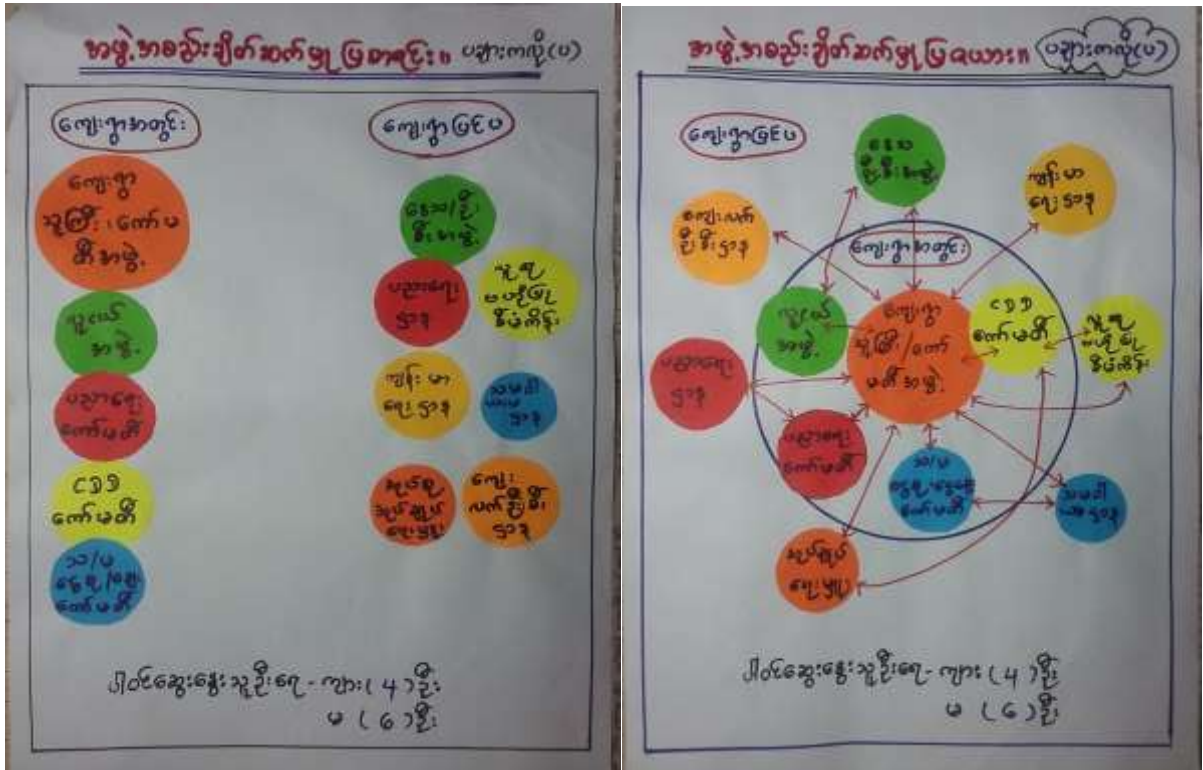 အဖွဲ့အစည်းချိတ်ဆက်မှုပြစာရင်း။ ပချားကလို(ပ)
ကျေးရွာအတွင်း
ကျေးရွာပြင်ပ
ကျေးရွာ
သူကြီး၊ကော်မ
တီအဖွဲ့
လူငယ်
အဖွဲ့
ပညာရေး
ကော်မတီ
CDD
ကော်မတီ
သ/မ
ငွေစု/ချေး
ကော်မတီ
ဒေသ/ဦး
စီးအဖွဲ့
ပညာရေး
ဌာန
လူမှု
ဗဟိုပြု
စီမံကိန်း
ကျန်းမာ
ရေးဌာန
သမဝါ
ယမ
ဌာန
အုပ်စု
အုပ်ချုပ်
ရေးမှူး
ကျေး
လက်ဦးစီး
ဌာန
ပါဝင်ဆွေးနွေးသူဦးရေ - ကျား (4) ဦး
မ (6) ဦး
အဖွဲ့အစည်းချိတ်ဆက်မှုပြဇယား။ ပချားကလို(ပ)
ကျေးရွာပြင်ပ
ဒေသ
ဦးစီးအဖွဲ့
ကျန်းမာ
ရေးဌာန
ကျေးလက်
ဦးစီးဌာန
ကျေးရွာအတွင်း
လူငယ်
အဖွဲ့
ကျေးရွာ
သူကြီး/ကော်
မတီအဖွဲ့
CDD
ကော်မတီ
လူမှု
ဗဟိုပြု
စီမံကိန်း
ပညာရေး
ဌာန
ပညာရေး
ကော်မတီ
သ/မ
ငွေစု/ငွေချေး
ကော်မတီ
သမဝါ
ယမဌာန
အုပ်ချုပ်
ရေးမှူး
ပါဝင်ဆွေးနွေးသူဦးရေ - ကျား (4) ဦး
မ (6) ဦး